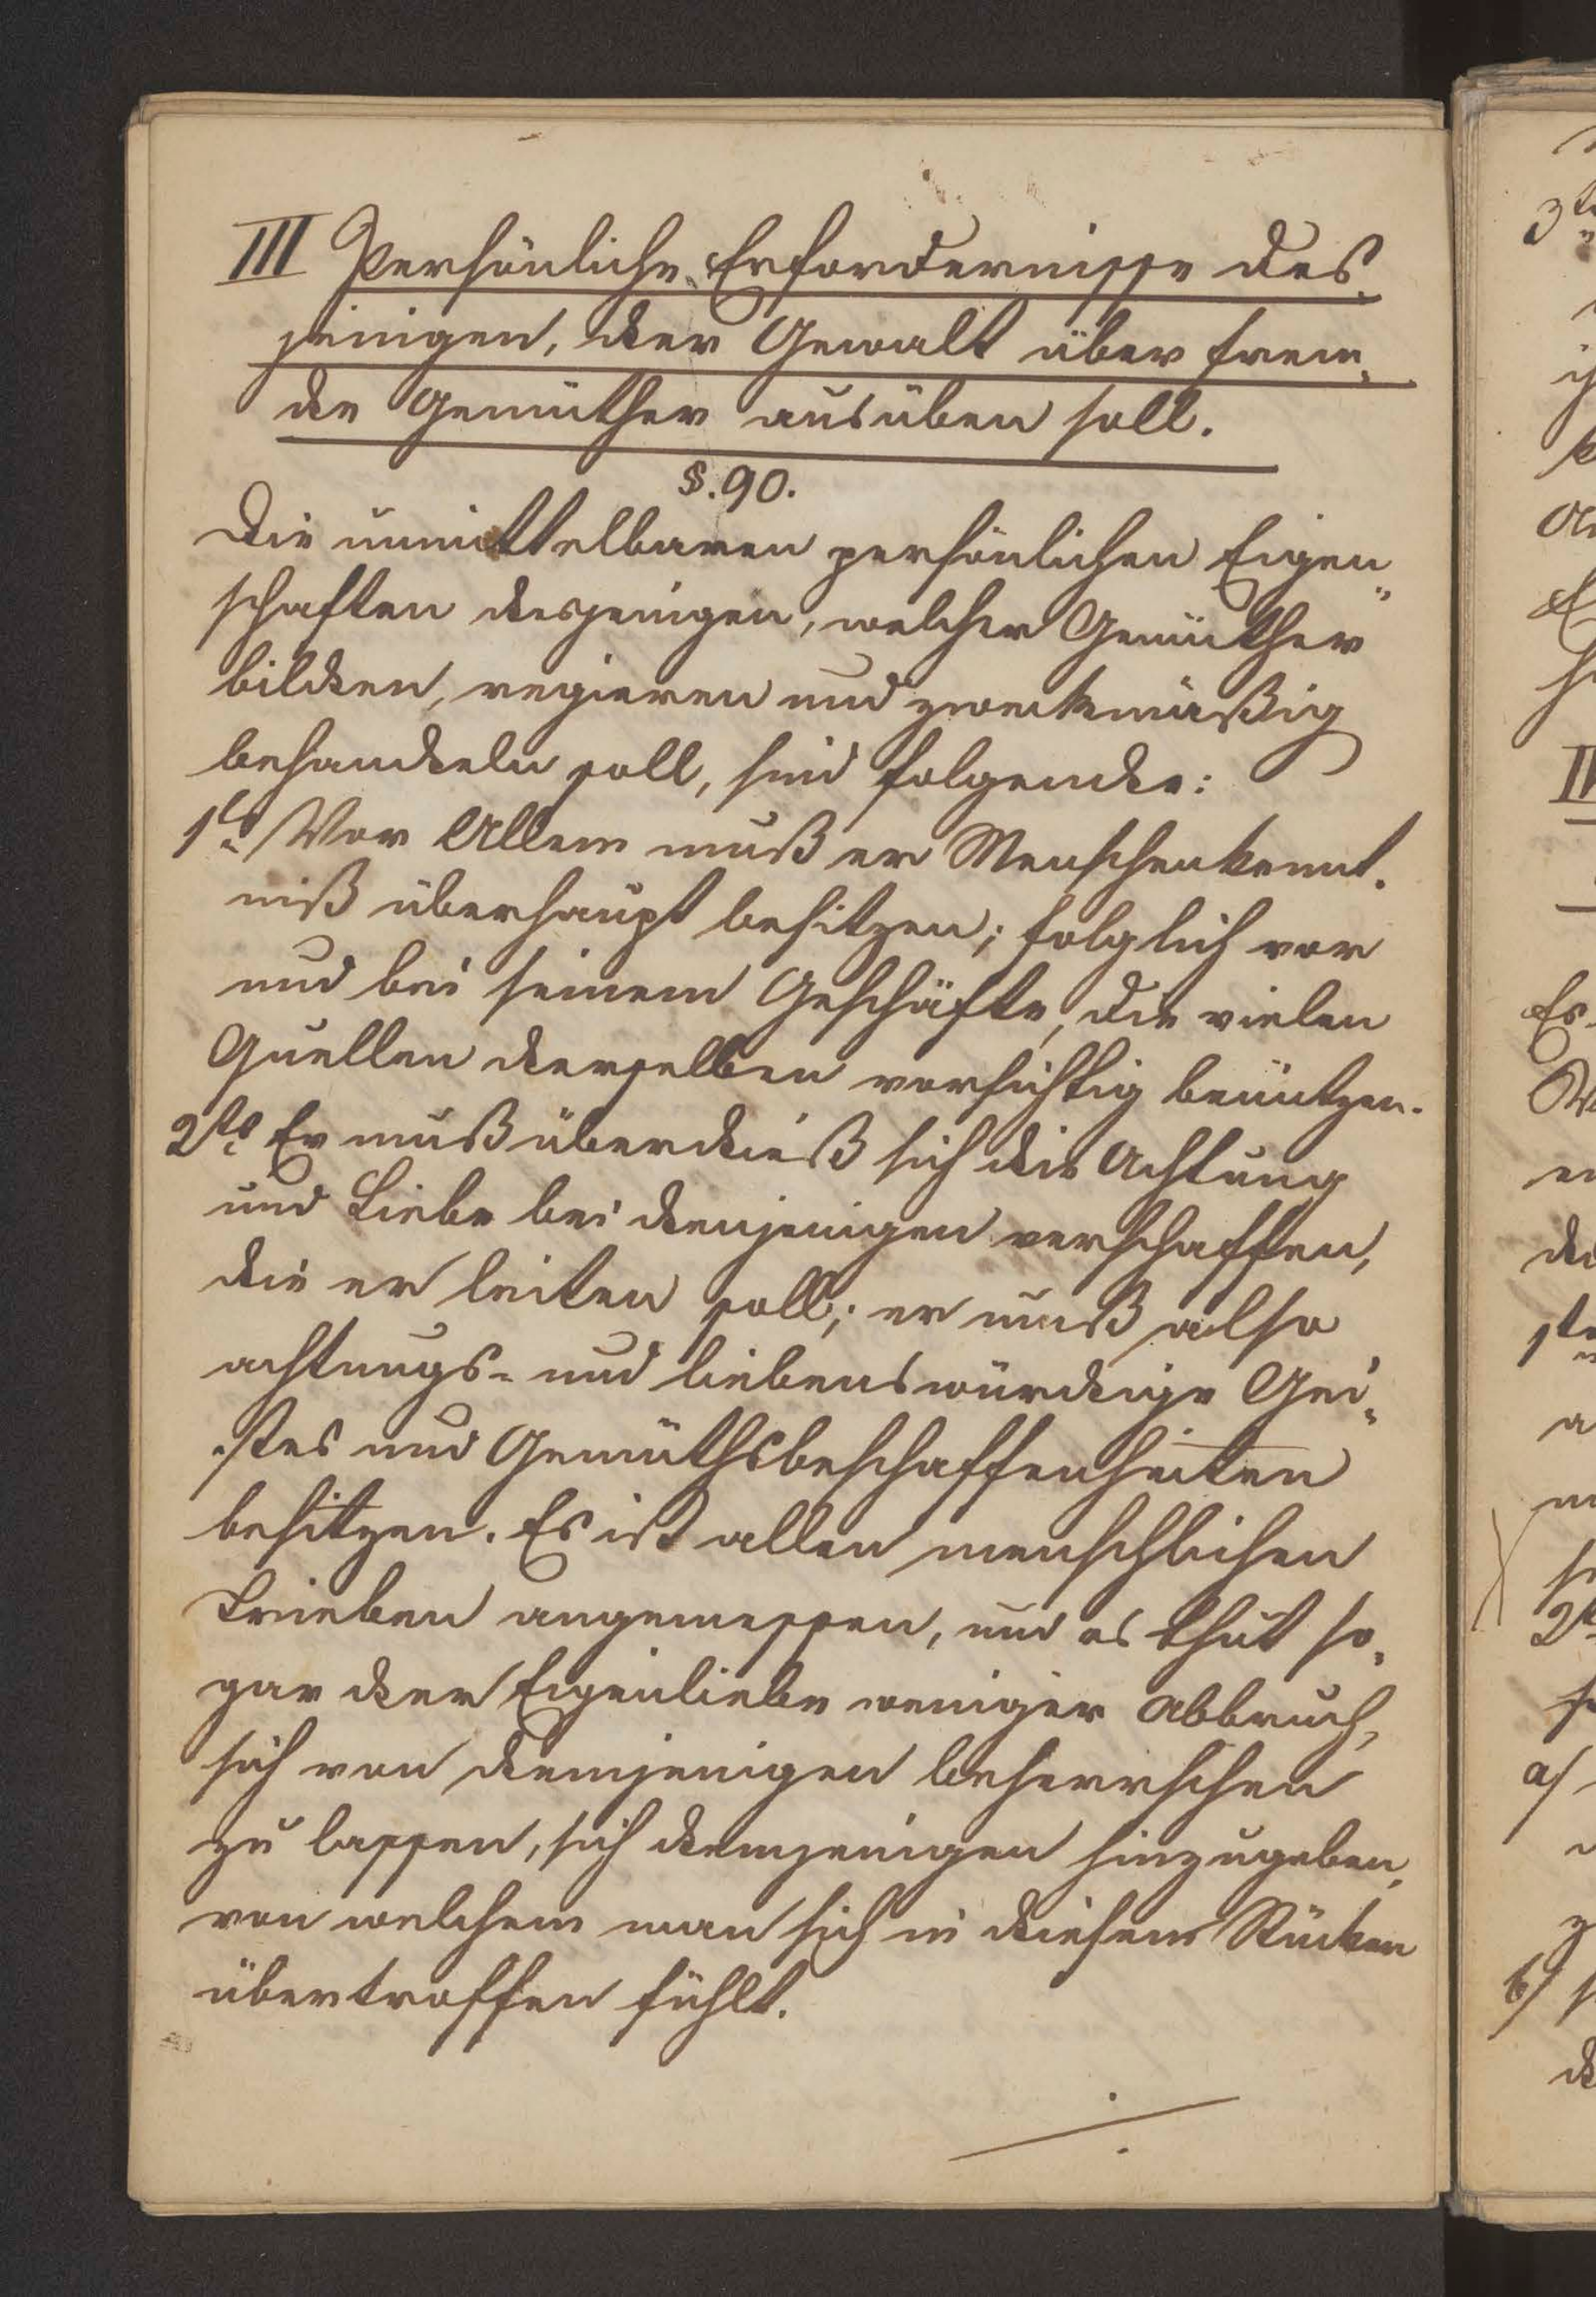 III Persönliche Erfordernisse des„
jenigen, der Gewalt über frem„
de Gemüther ausüben soll.
§. 90.
Die unmittelbaren persönlichen Eigen„
schaften desjenigen, welcher Gemüther
bilden, regieren und zweckmäßig
behandeln soll, sind folgende:
1tens Vor Allem muß er Menschenkennt„
niß überhaupt besitzen; folglich vor
und bei seinem Geschäfte, die vielen
Quellen derselben vorsichtig benützen.
2tens Er muß überdieß sich die Achtung
und Liebe bei denjenigen verschaffen,
die er leiten soll; er muß also
achtungs- und liebenswürdige Gei„
stes und Gemüthsbeschaffenheiten
besitzen. Es ist allen menschlichen
Trieben angemessen, und es thut so„
gar der Eigenliebe weniger Abbruch,
sich von demjenigen beherrschen
zu lassen, sich demjenigen hinzugeben,
von welchem man sich in diesem Stücken
übertroffen fühlt.